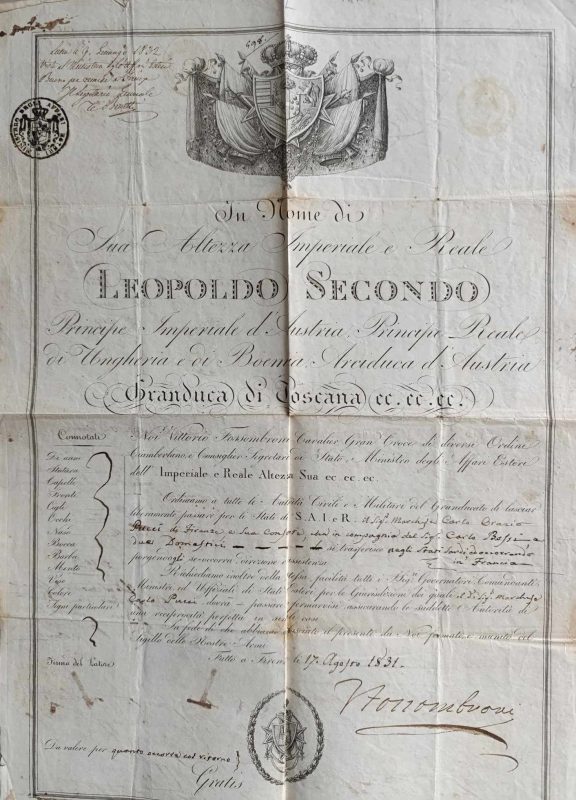 598.
1832
MINISTERO DEGLI AFFARI ESTERI
In Nome di
Sua Altezza Imperiale e Reale
LEOPOLDO SECONDO
Principe Imperiale d'Austria, Principe Reale
di Ungheria e di Boemia, Arciduca d'Austria
Granduca di Toscana ec. ec. ec.
Connotati
Di anni
Statura
Capelli
Fronte
Cigli
Occhi
Naso
Bocca
Barba
Mento
Viso
Colore
Segni particolari
Firma del Latore
Noi Vittorio Fossombroni Cavalier Gran Croce di diversi Ordini
Ciamberlano e Consiglier Segretario di Stato, Ministro degli Affari Esteri
dell' Imperiale e Reale Altezza Sua ec. ec. ec.
Ordiniamo a tutte le Autorità Civili e Militari del Granducato di lasciar
liberamente passare per li Stati di S. A. I. e R. il Sig. Marchese Carlo Orazio
Pucci di Firenze e Sua Consorte, che in compagnia del Sig. Carlo
due Domestici si trasferisce negli Stati Sardi
in Francia
porgendogli se occorra
Richiediamo inoltre tutti i Sigg. Governatori Comandanti
Ministri ed Uffiziali di Stati Esteri, per le Giurisdizioni da quali il d. Sig. Marchese
Carlo Pucci dovrà passare o fermarvisi, assicurando le suddette Autorità di
una reciprocità perfetta in simili casi
In fede di che abbiamo rilasciato il presente da Noi firmato, e munito col
Sigillo delle Nostre Armi
Fatto a Firenze le 17. Agosto 1831.
Fossombroni
Da valere per quanto occorre col ritorno
Gratis